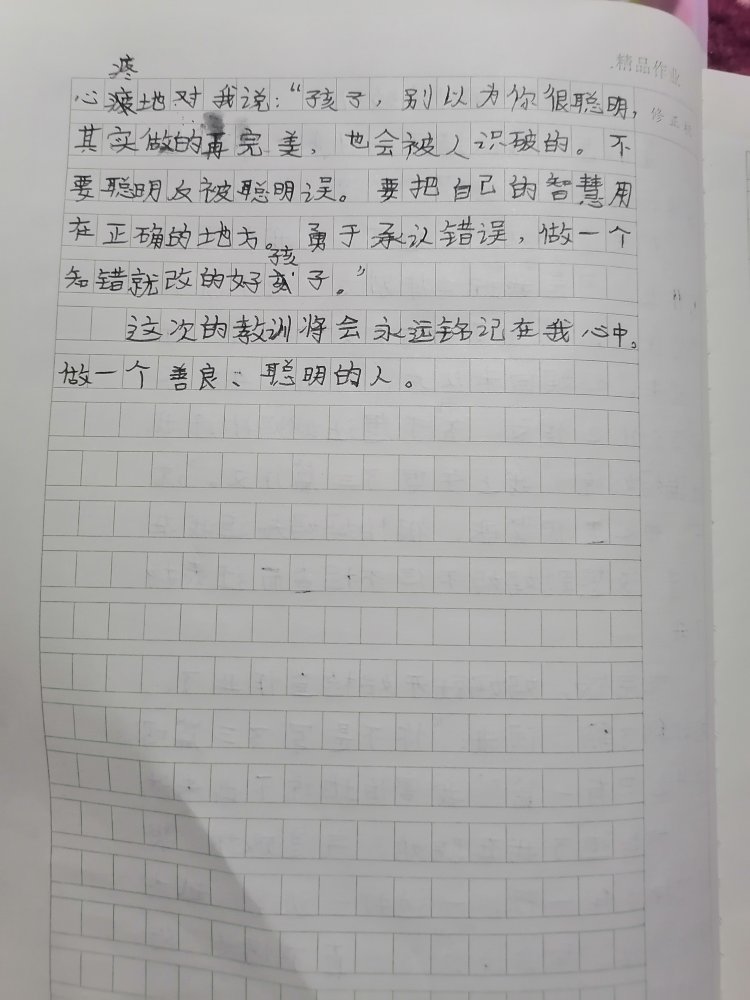 精品作业
修正
疼
心疼地对我说：“孩子，别以为你很聪明，
其实做的再完美，也会被人识破的。不
要聪明反被聪明误。要把自己的智慧用
在正确的地方。勇于承认错误，做一个
孩
知错就改的好孩子。”
这次的教训将会永远铭记在我心中。
做一个善良、聪明的人。